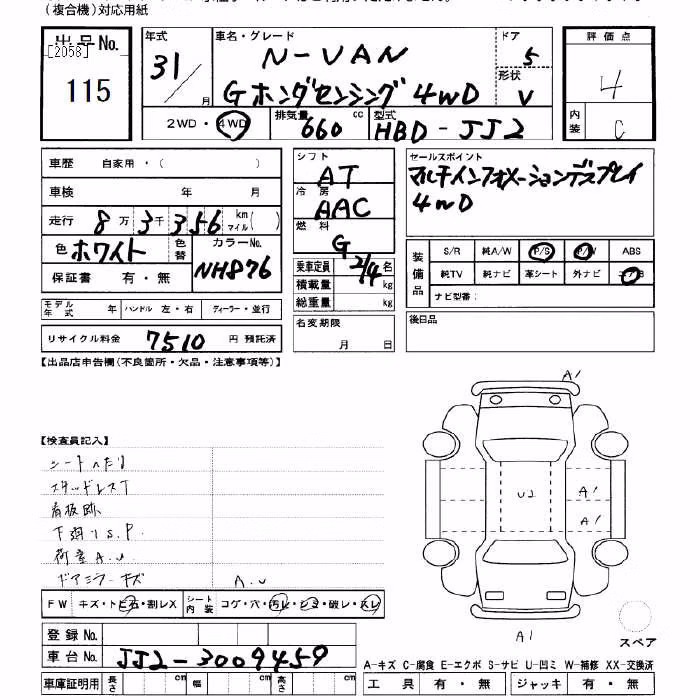 (複合機)対応用紙
出品No.
[2058]
115
年式
31/
月
車名・グレード
N-VAN
Gホンダセンシング 4WD
ドア
5
形状
V
2WD・4WD
排気量
660
cc
型式
HBD-JJ2
評価点
4
内装
C
車歴 自家用・( )
車検 年 月
走行 8万3千356 km マイル( )
色 ホワイト
色替
カラーNo.
NH876
保証書 有・無
モデル年式 年 ハンドル 左・右 ディーラー・並行
リサイクル料金 7510 円 預託済
シフト
AT
冷房
AAC
燃料
G
乗車定員 2/4 名
積載量 kg
総重量 kg
名変期限
月 日
セールスポイント
マルチインフォメーションディスプレイ
4WD
装備品
S/R 純A/W P/S P/W ABS
純TV 純ナビ 革シート 外ナビ
ナビ型番:
後日品
【出品店申告欄(不良箇所・欠品・注意事項等)】
【検査員記入】
シートへたり
スタッドレスT
看板跡
下廻りS.P.
荷室A.U
ドアミラーキズ A.U
A1
U2
A1
A1
A1
スペア
FW キズ・トビ石・割レX
シート内装 コゲ・穴・汚レ・シミ・破レ・スレ
登録No.
車台No. JJ2-3009459
車庫証明用 長さ cm 幅 cm 高さ cm
A-キズ C-腐食 E-エクボ S-サビ U-凹ミ W-補修 XX-交換済
工具 有・無 ジャッキ 有・無